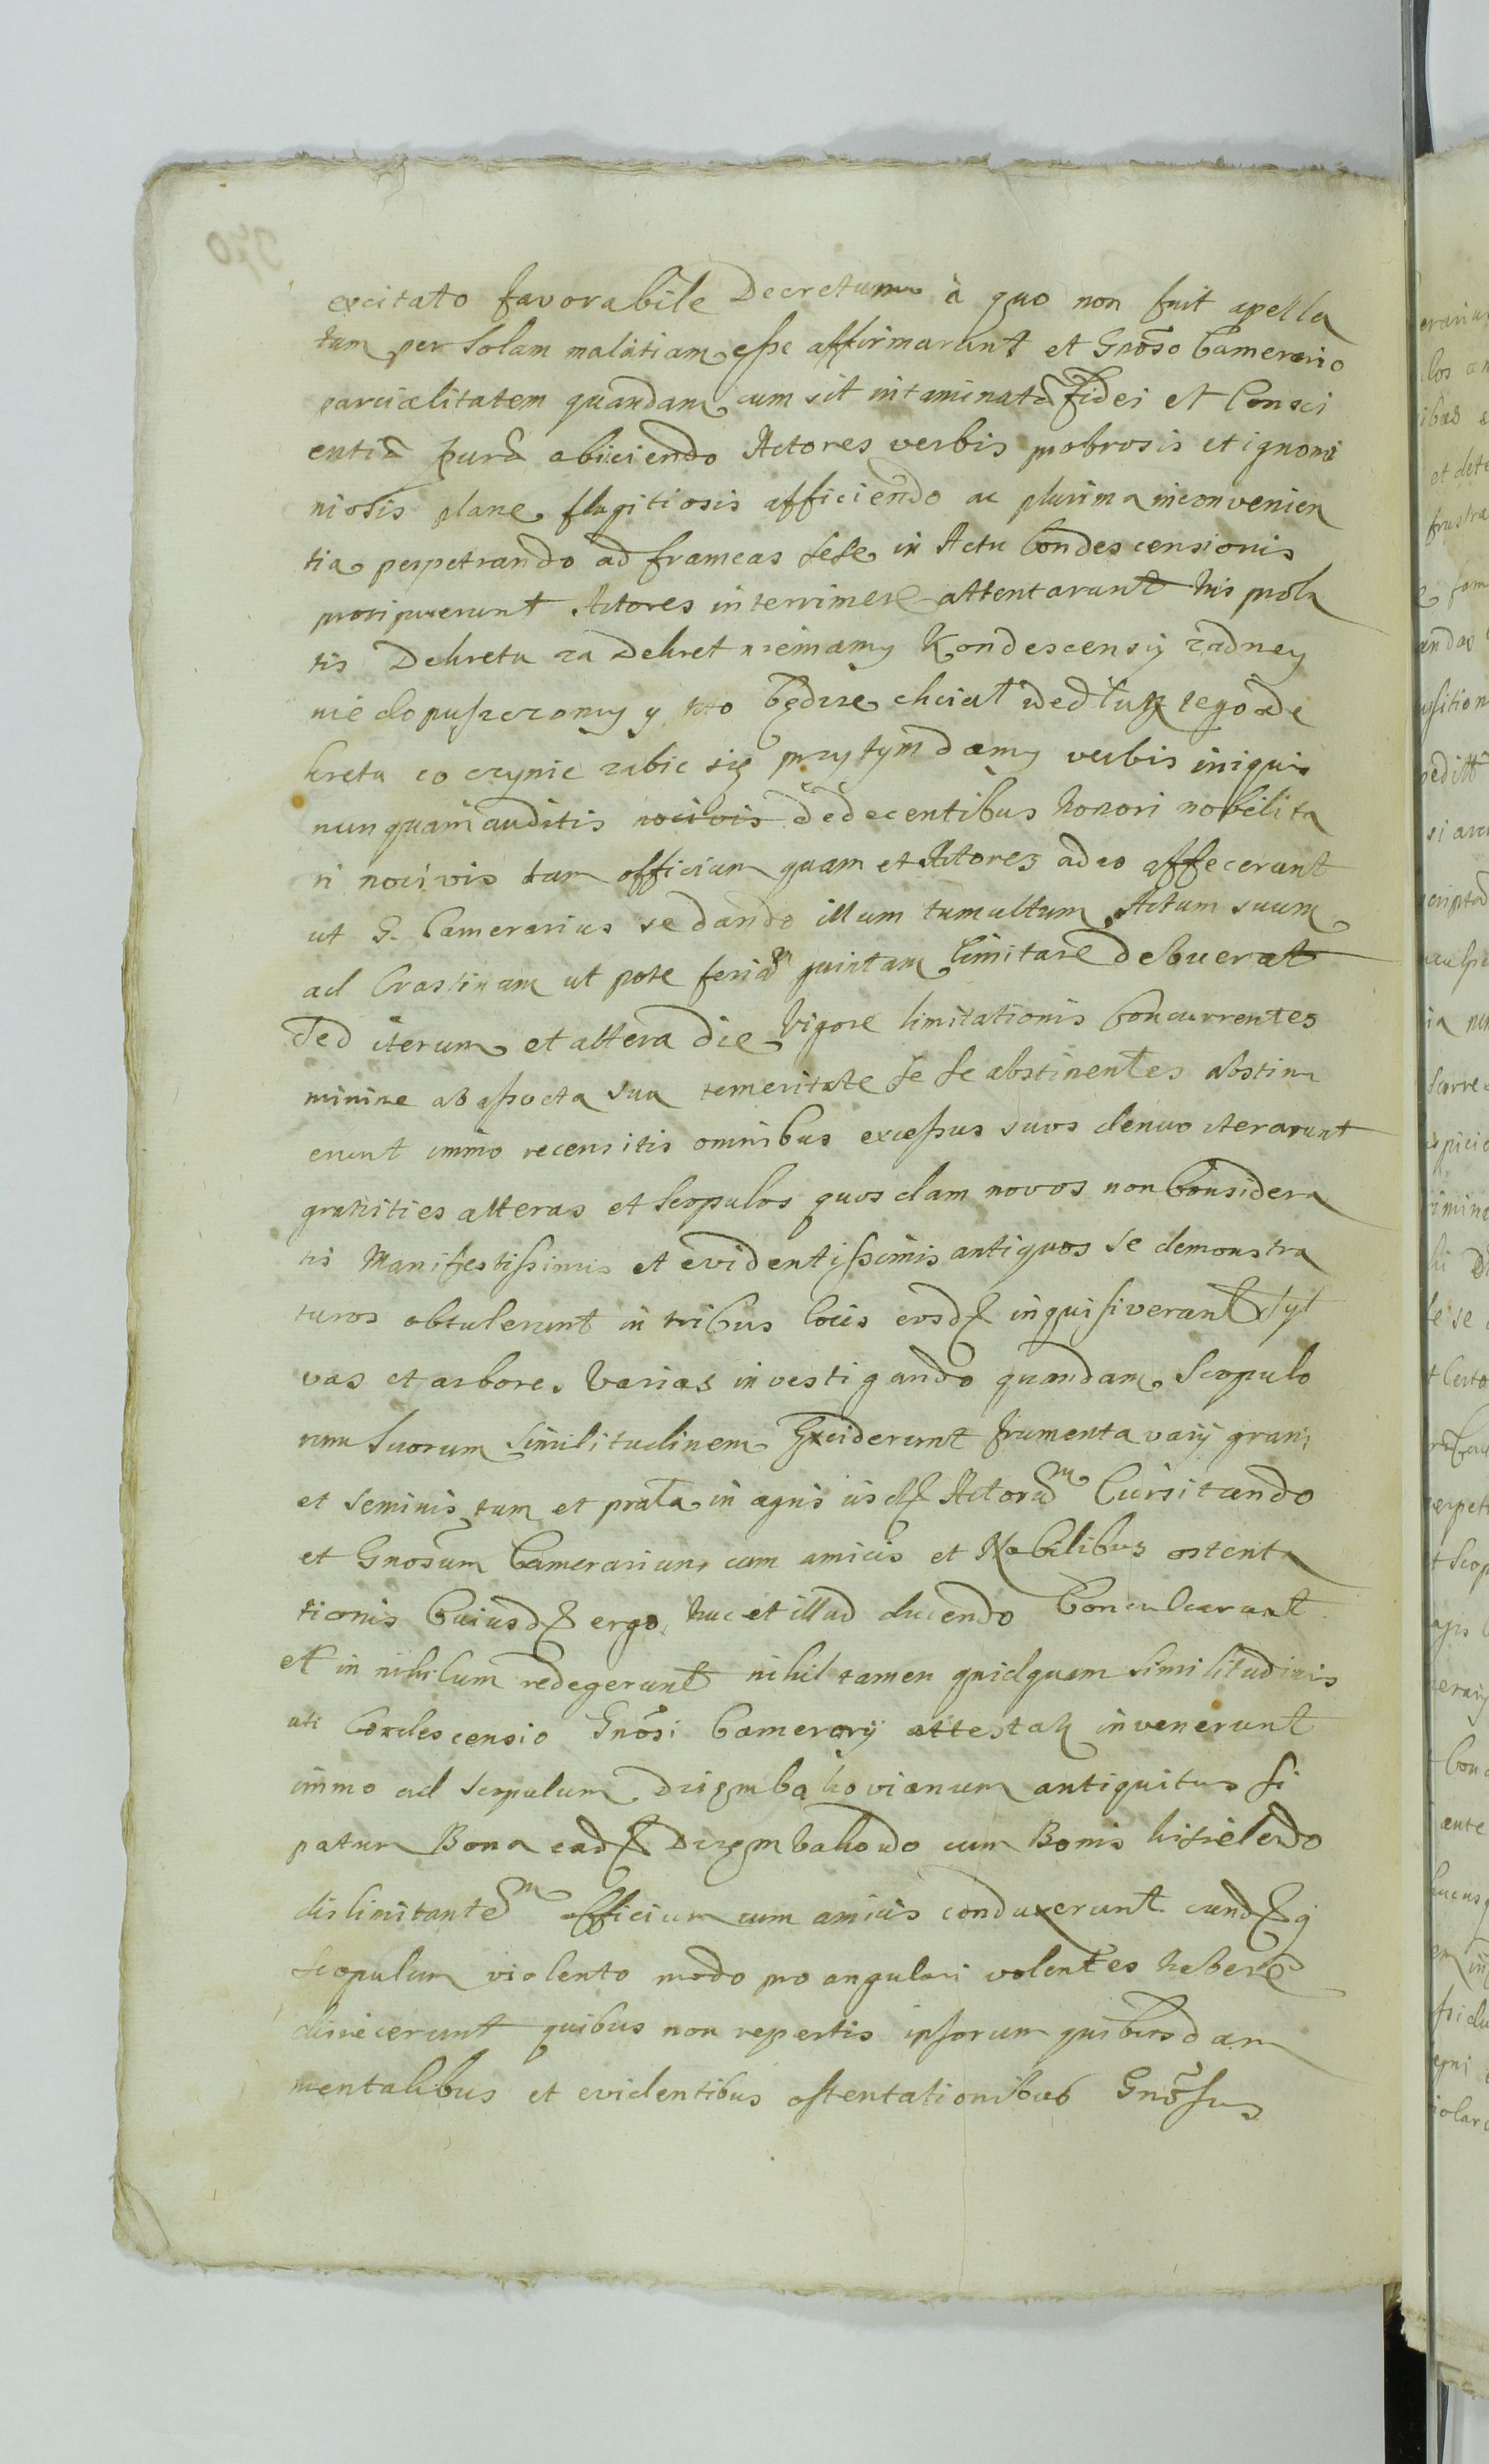 excitato favorabile Decretum à quo non fuit apella
tum per Solam malitiam esse affirmarunt et Gnōso Camerario
parcialitatem quandam cum sit intaminatæ fidei et Consci
entiæ puræ abiiciendo Actores verbis probrosis et ignomi
niosis plane flagitiosis afficiendo ac plurima inconvenien
tia perpetrando ad frameas sese in Actu Condescensionis
proripuerunt Actores interrimere attentarunt his prola
tis Dekretu za Dekret niemamy Kondescensiy zadney
nie dopuszczomy y kto będzie chciał według tego De
kretu co czynic zabic się przy tym damy verbis iniquis
nunquam auditis nocivis dedecentibus honori nobilita
ri nocivis tam officium quam et Actores adeo affecerunt
ut G. Camerarius sedando illum tumultum Actum suum
ad Crastinam ut pote feriam quintam limitare debuerat
Sed iterum et altera die vigore limitationis Concurrentes
minime ab assueta sua temeritate se se abstinentes abstinu
erunt immo recensitis omnibus excessus suos denuo iterarunt
granities alteras et Scopulos quosdam novos non Considera
tis Manifestissimis et evidentissimis antiquos se demonstra
turos obtulerunt in tribus locis eosdē inquisiverant Syl
vas et arbores varias investigando quandam Scopulo
rum Suorum similitudinem Exciderunt frumenta varij grani
et seminis tum et prata in agris iisdē Actorum Cursitando
et Gnosum Camerarium cum amicis et Nobilibus ostenta
tionis Cuiusdē ergo huc et illud ducendo Conculcarunt
et in nihilum redegerunt nihil tamen quidquam similitudinis
uti Condescensio Gnōsi Camerarij attestatur invenerunt
immo ad scopulum Dziembakovianum antiquitus si
patum Bona eadē Dziembakowo cum Bonis Kisielewo
dislimitantem officium cum amicis conduxerunt eundēq
scopulum violento modo pro angulari volentes habere
disiecerunt quibus non repertis ipsorum quibusdam
mentalibus et evidentibus ostentationibus Gnōsus